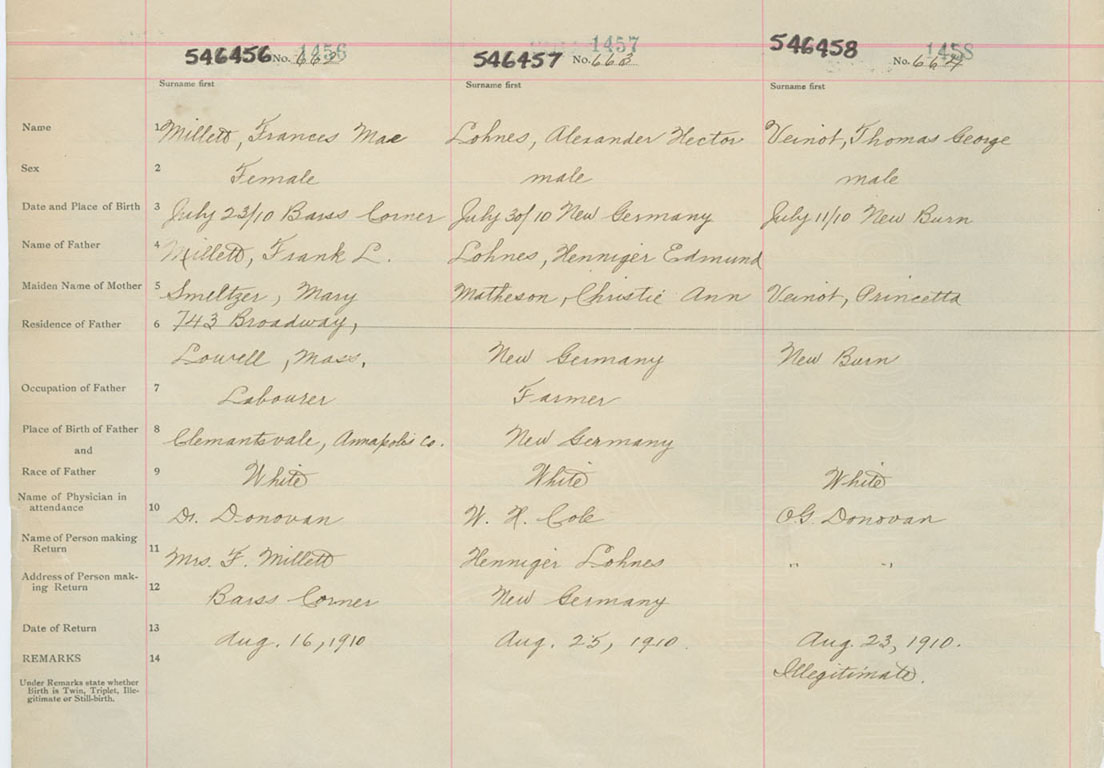 546456 No. 662 1456 546457 No. 663 1457 546458 No. 664 1458
Surname first Surname first Surname first
Name 1 Millett, Frances Mae Lohnes, Alexander Hector Veinot, Thomas George
Sex 2 Female male male
Date and Place of Birth 3 July 23/10 Barss Corner July 30/10 New Germany July 11/10 New Burn
Name of Father 4 Millett, Frank L. Lohnes, Henniger Edmund
Maiden Name of Mother 5 Smeltzer, Mary Matheson, Christie Ann Veinot, Princetta
Residence of Father 6 743 Broadway,
Lowell, Mass, New Germany New Burn
Occupation of Father 7 Labourer Farmer
Place of Birth of Father 8 Clemantsvale, Annapolis Co. New Germany
and
Race of Father 9 White White White
Name of Physician in
attendance 10 Dr. Donovan W. H. Cole OG. Donovan
Name of Person making
Return 11 Mrs. F. Millett Henniger Lohnes " "
Address of Person mak-
ing Return 12 Barss Corner New Germany
Date of Return 13 Aug. 16, 1910 Aug. 25, 1910. Aug. 23, 1910.
REMARKS 14 Illegitimate.
Under Remarks state whether
Birth is Twin, Triplet, Ille-
gitimate or Still-birth.